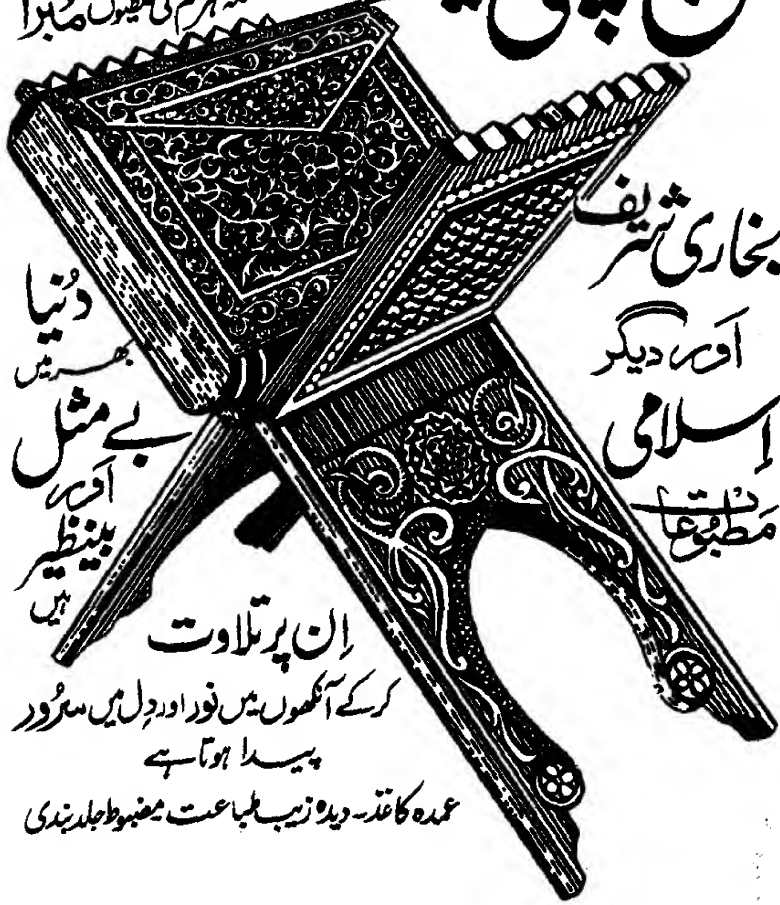 ہر قسم کی غلطیوں مُبرا
بخاری شریف
اور دیگر
اِسلامی
مَطبُوعات
دُنیا
بھر میں
بے مثل
اور
بینظیر
ہیں
اِن پر تلاوت
کرکے آنکھوں میں نور اور دِل میں سرُور
پیدا ہوتا ہے
عمدہ کاغذ۔ دیدہ زیب طباعت مضبوط جلد بندی